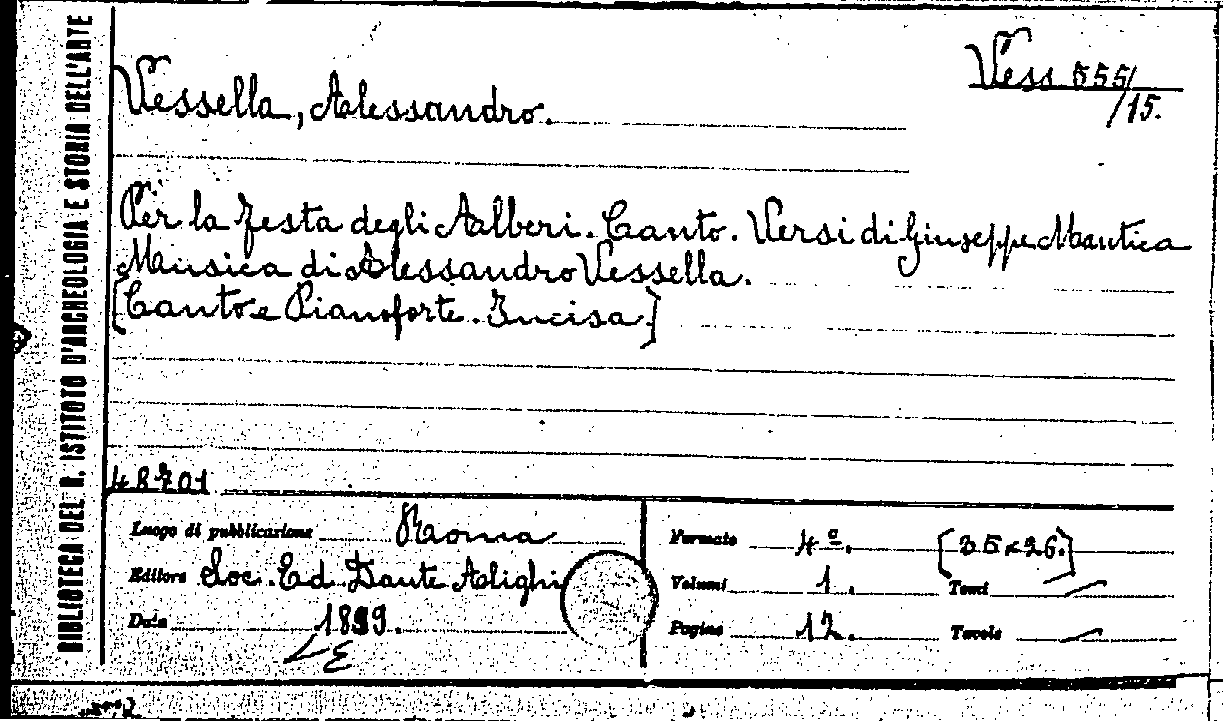 BIBLIOTECA DEL R. ISTITUTO D'ARCHEOLOGIA E STORIA DELL'ARTE
Vess 555/
/15.
Vessella, Alessandro.
Per la festa degli Alberi. Canto. Versi di Giuseppe Mantica
Musica di Alessandro Vessella.
[Canto e Pianoforte. Incisa.]
48701
Luogo di pubblicazione Roma
Editore Soc. Ed. Dante Alighi
Data 1899.
Formato 4º. [35x26.]
Volumi 1. Tomi /
Pagine 12. Tavole /